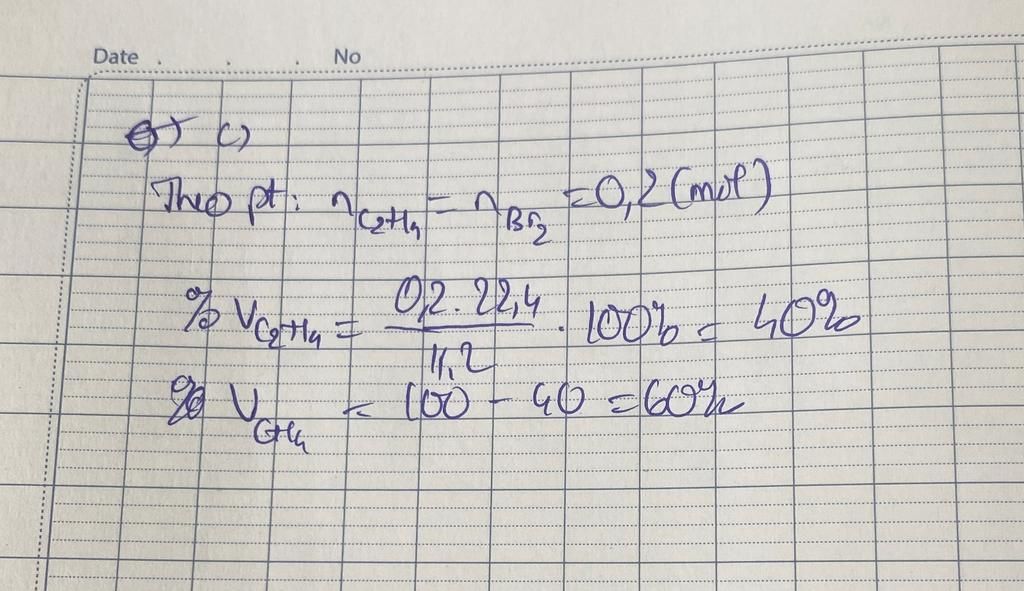 Date . . . No
c)
Theo pt: nC₂H₄ = nBr₂ = 0,2 (mol)
% VC₂H₄ = 0,2 . 22,4 / 11,2 . 100% = 40%
% VCH₄ = 100 - 40 = 60%